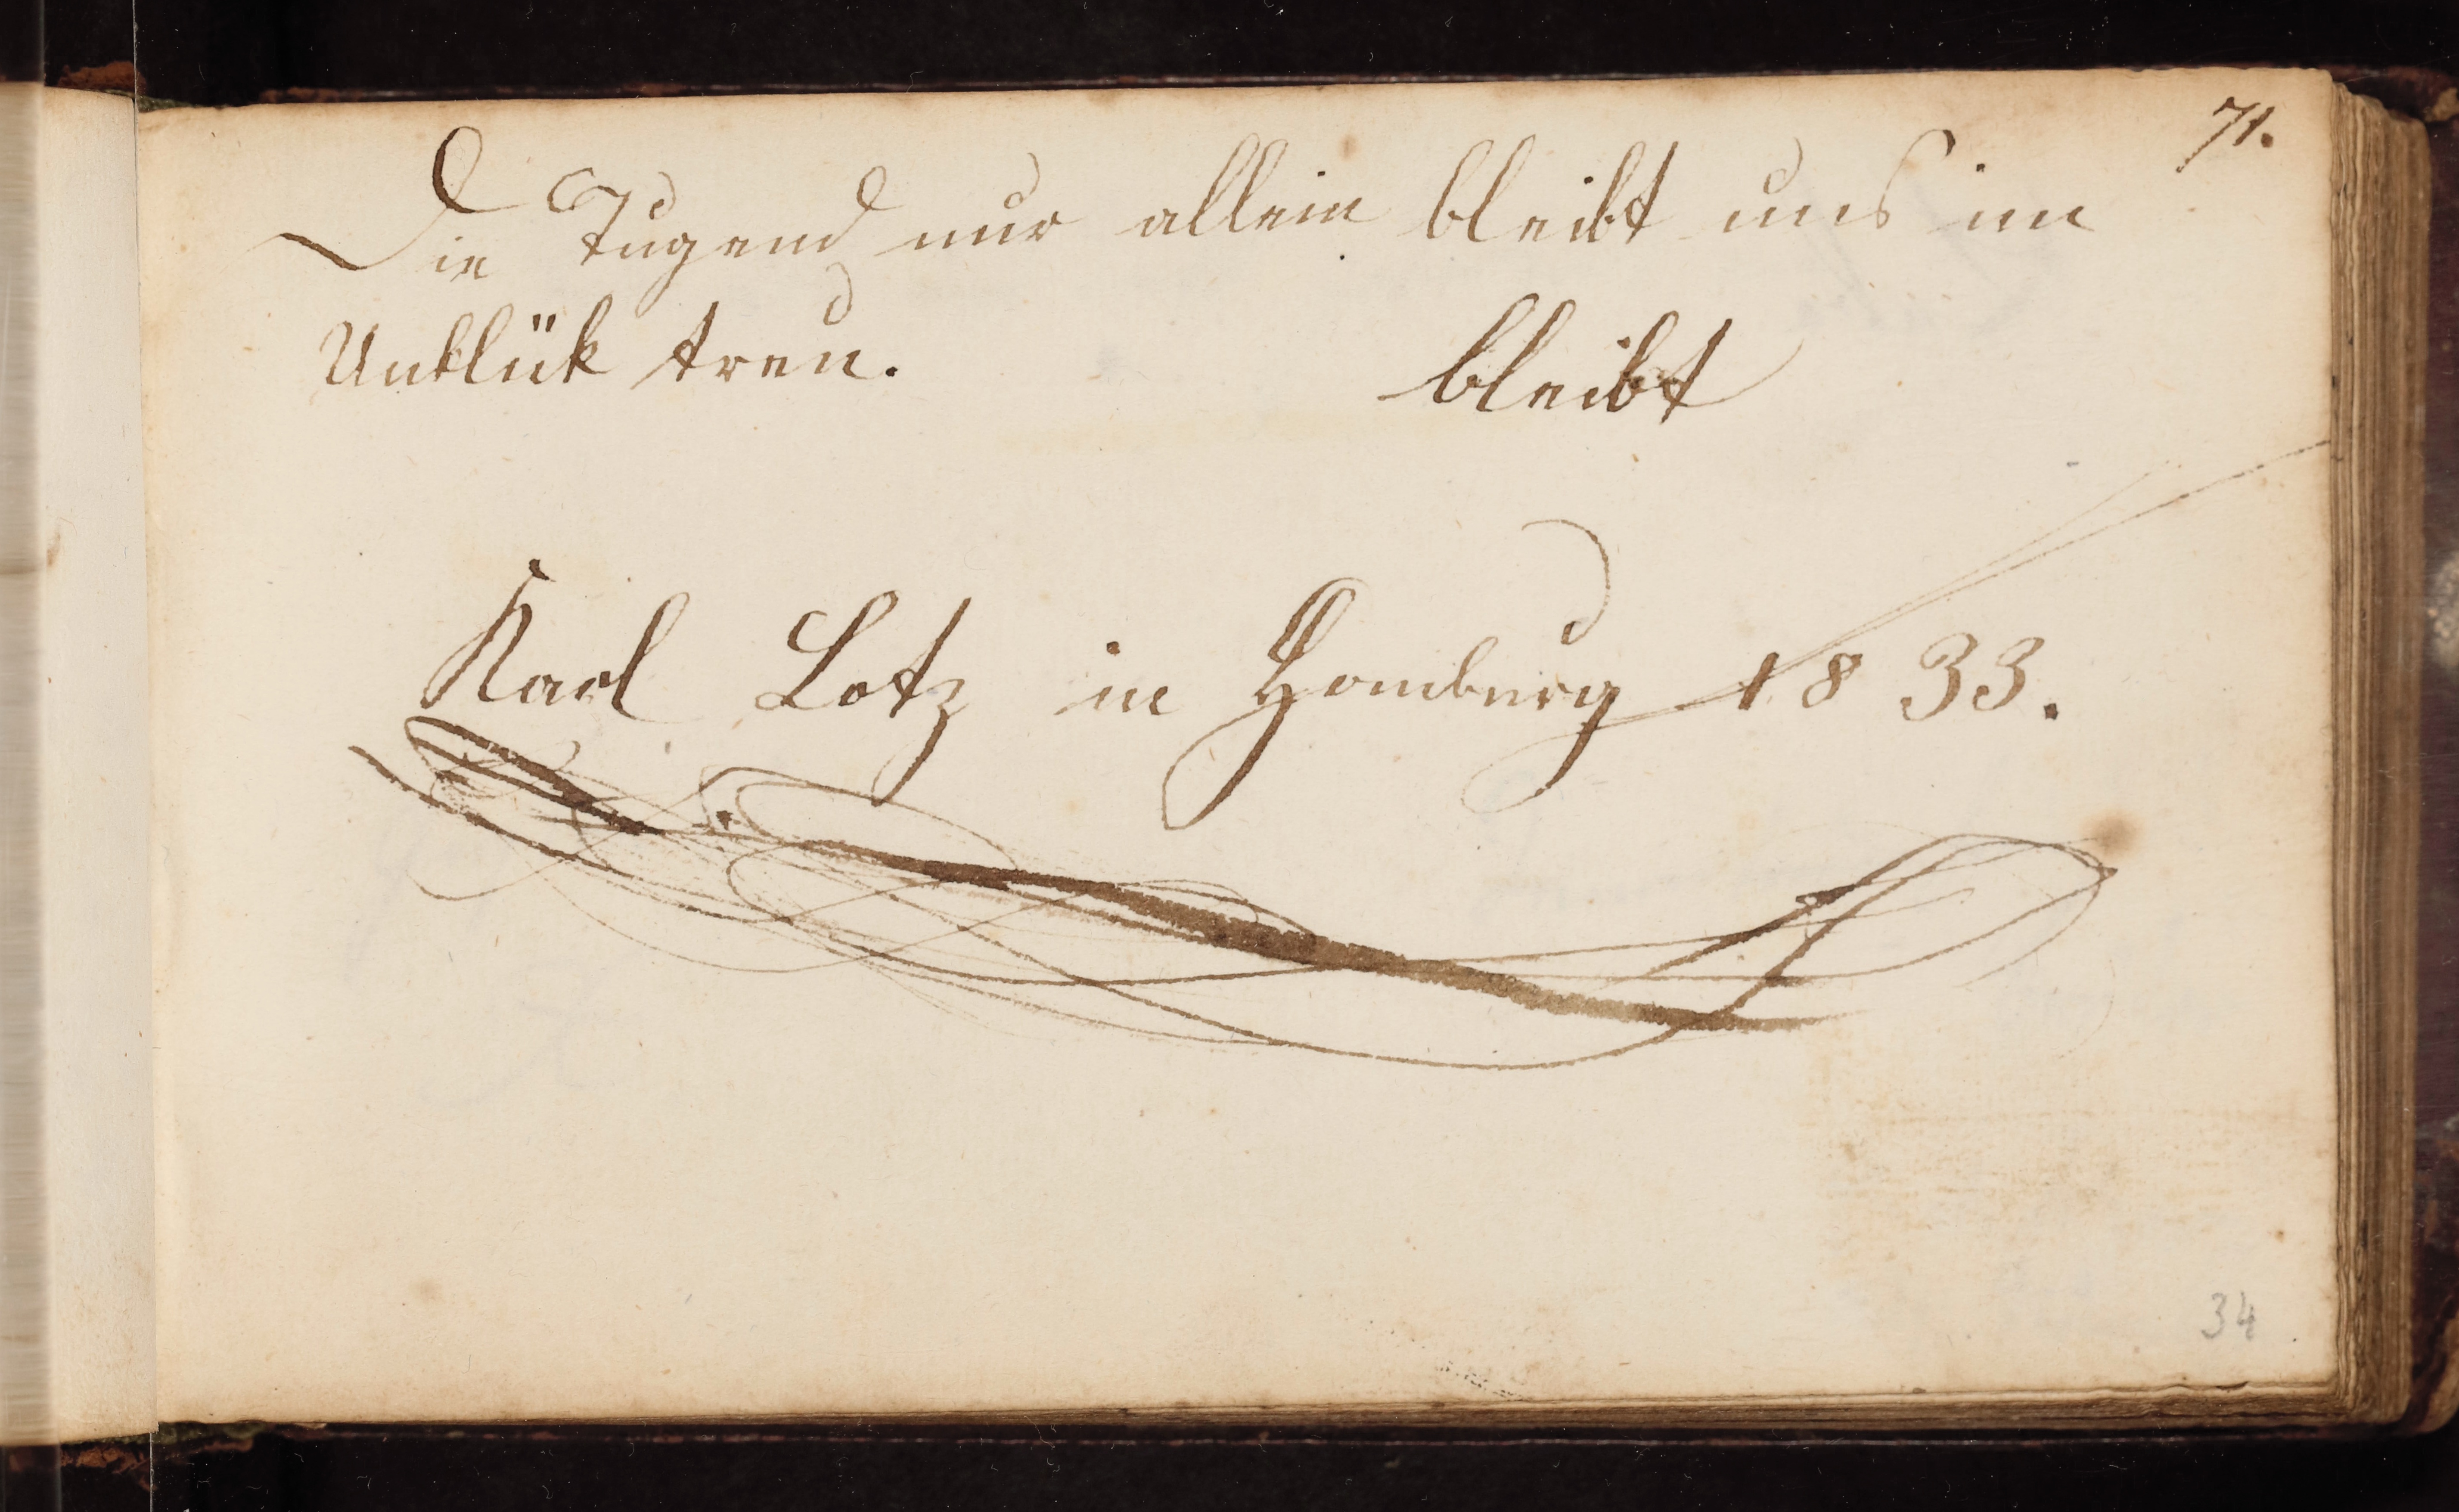 71.
Die Tugend nur allein bleibt uns im
Unklük treu.
bleibt
Karl Lotz in Homburg 1833.
34